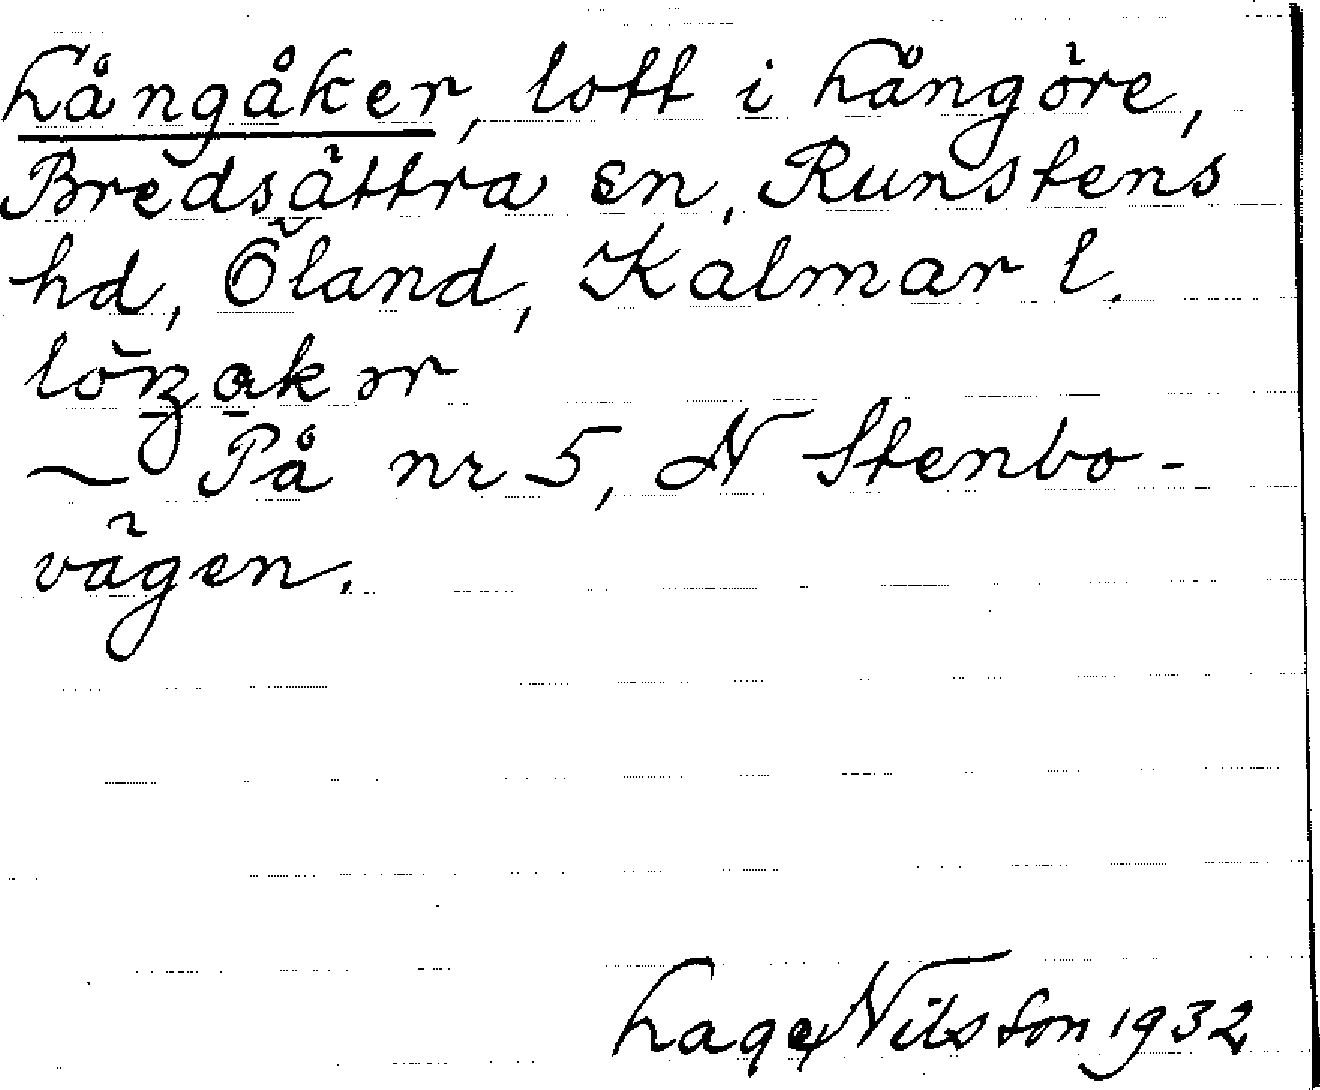 Långåker, lott i Långöre,
Bredsättra sn, Runstens
hd, Öland, Kalmar l.
— På nr 5, N Stenbo-
vägen.
Lage Nilsson 1932